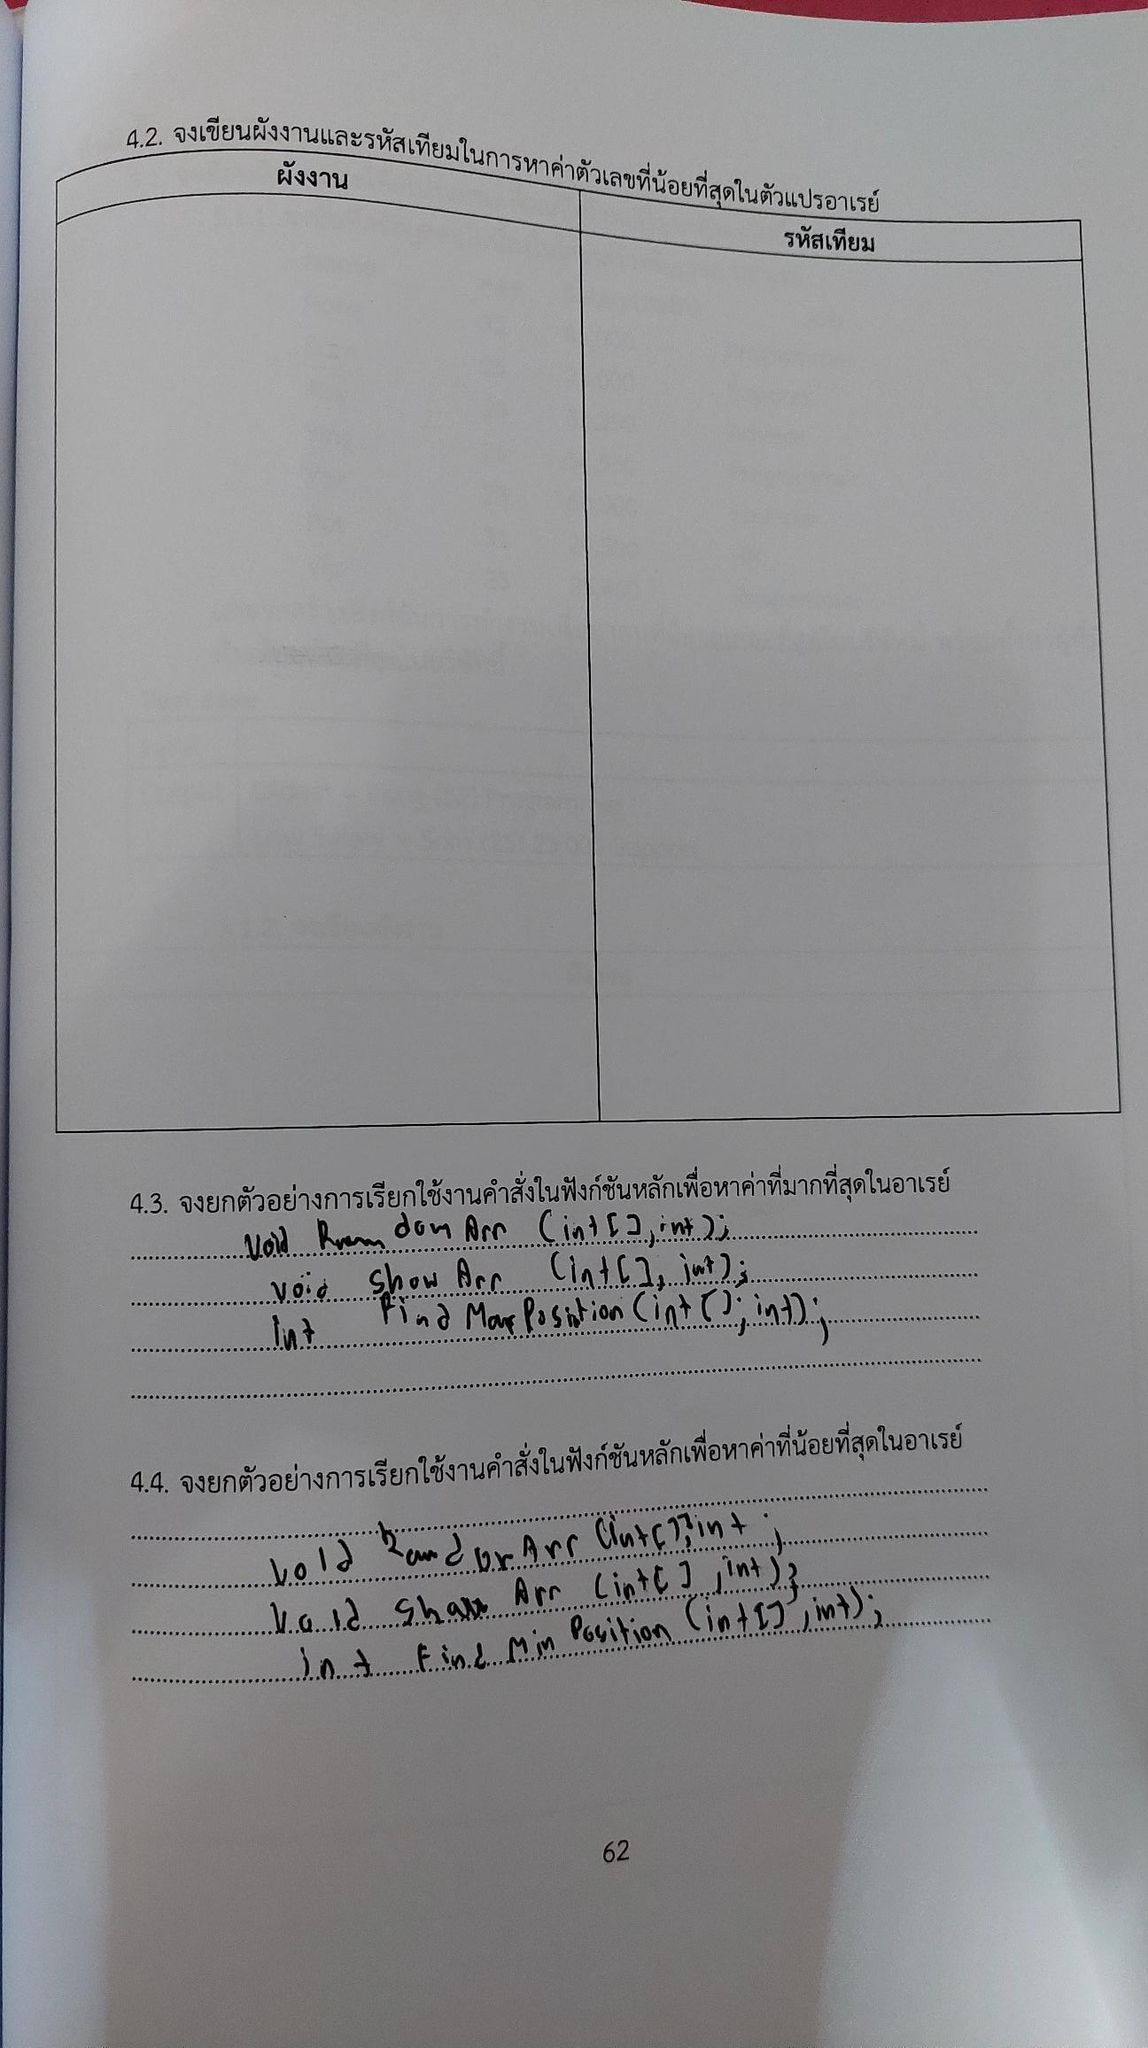 4.2. จงเขียนผังงานและรหัสเทียมในการหาค่าตัวเลขที่น้อยที่สุดในตัวแปรอาเรย์
ผังงาน
รหัสเทียม
4.3. จงยกตัวอย่างการเรียกใช้งานคำสั่งในฟังก์ชันหลักเพื่อหาค่าที่มากที่สุดในอาเรย์
void Random Arr (int[], int);
void Show Arr (int[], int);
int Find Max Position (int[]; int);
4.4. จงยกตัวอย่างการเรียกใช้งานคำสั่งในฟังก์ชันหลักเพื่อหาค่าที่น้อยที่สุดในอาเรย์
void Arr (int[]; int ;
void Show Arr (int[], int);
int Find Min Position (int[], int);
62